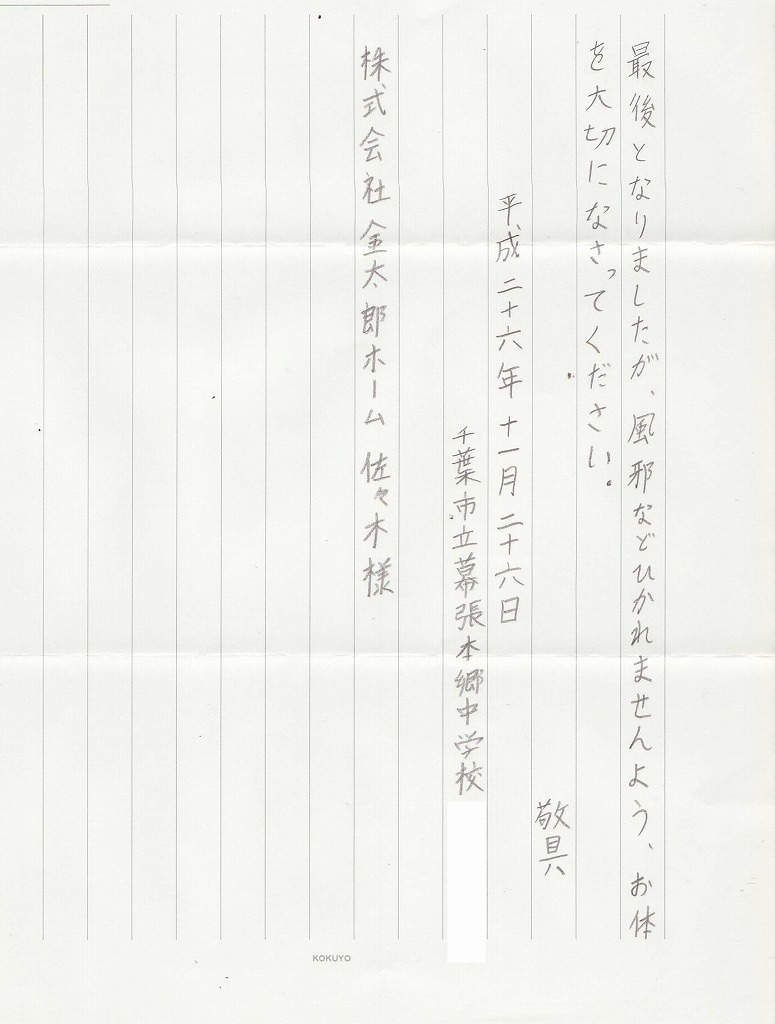 最後となりましたが、風邪などひかれませんよう、お体
を大切になさってください。
敬具
平成二十六年 十一月 二十六日
千葉市立幕張本郷中学校
株式会社 金太郎ホーム 佐々木様
KOKUYO